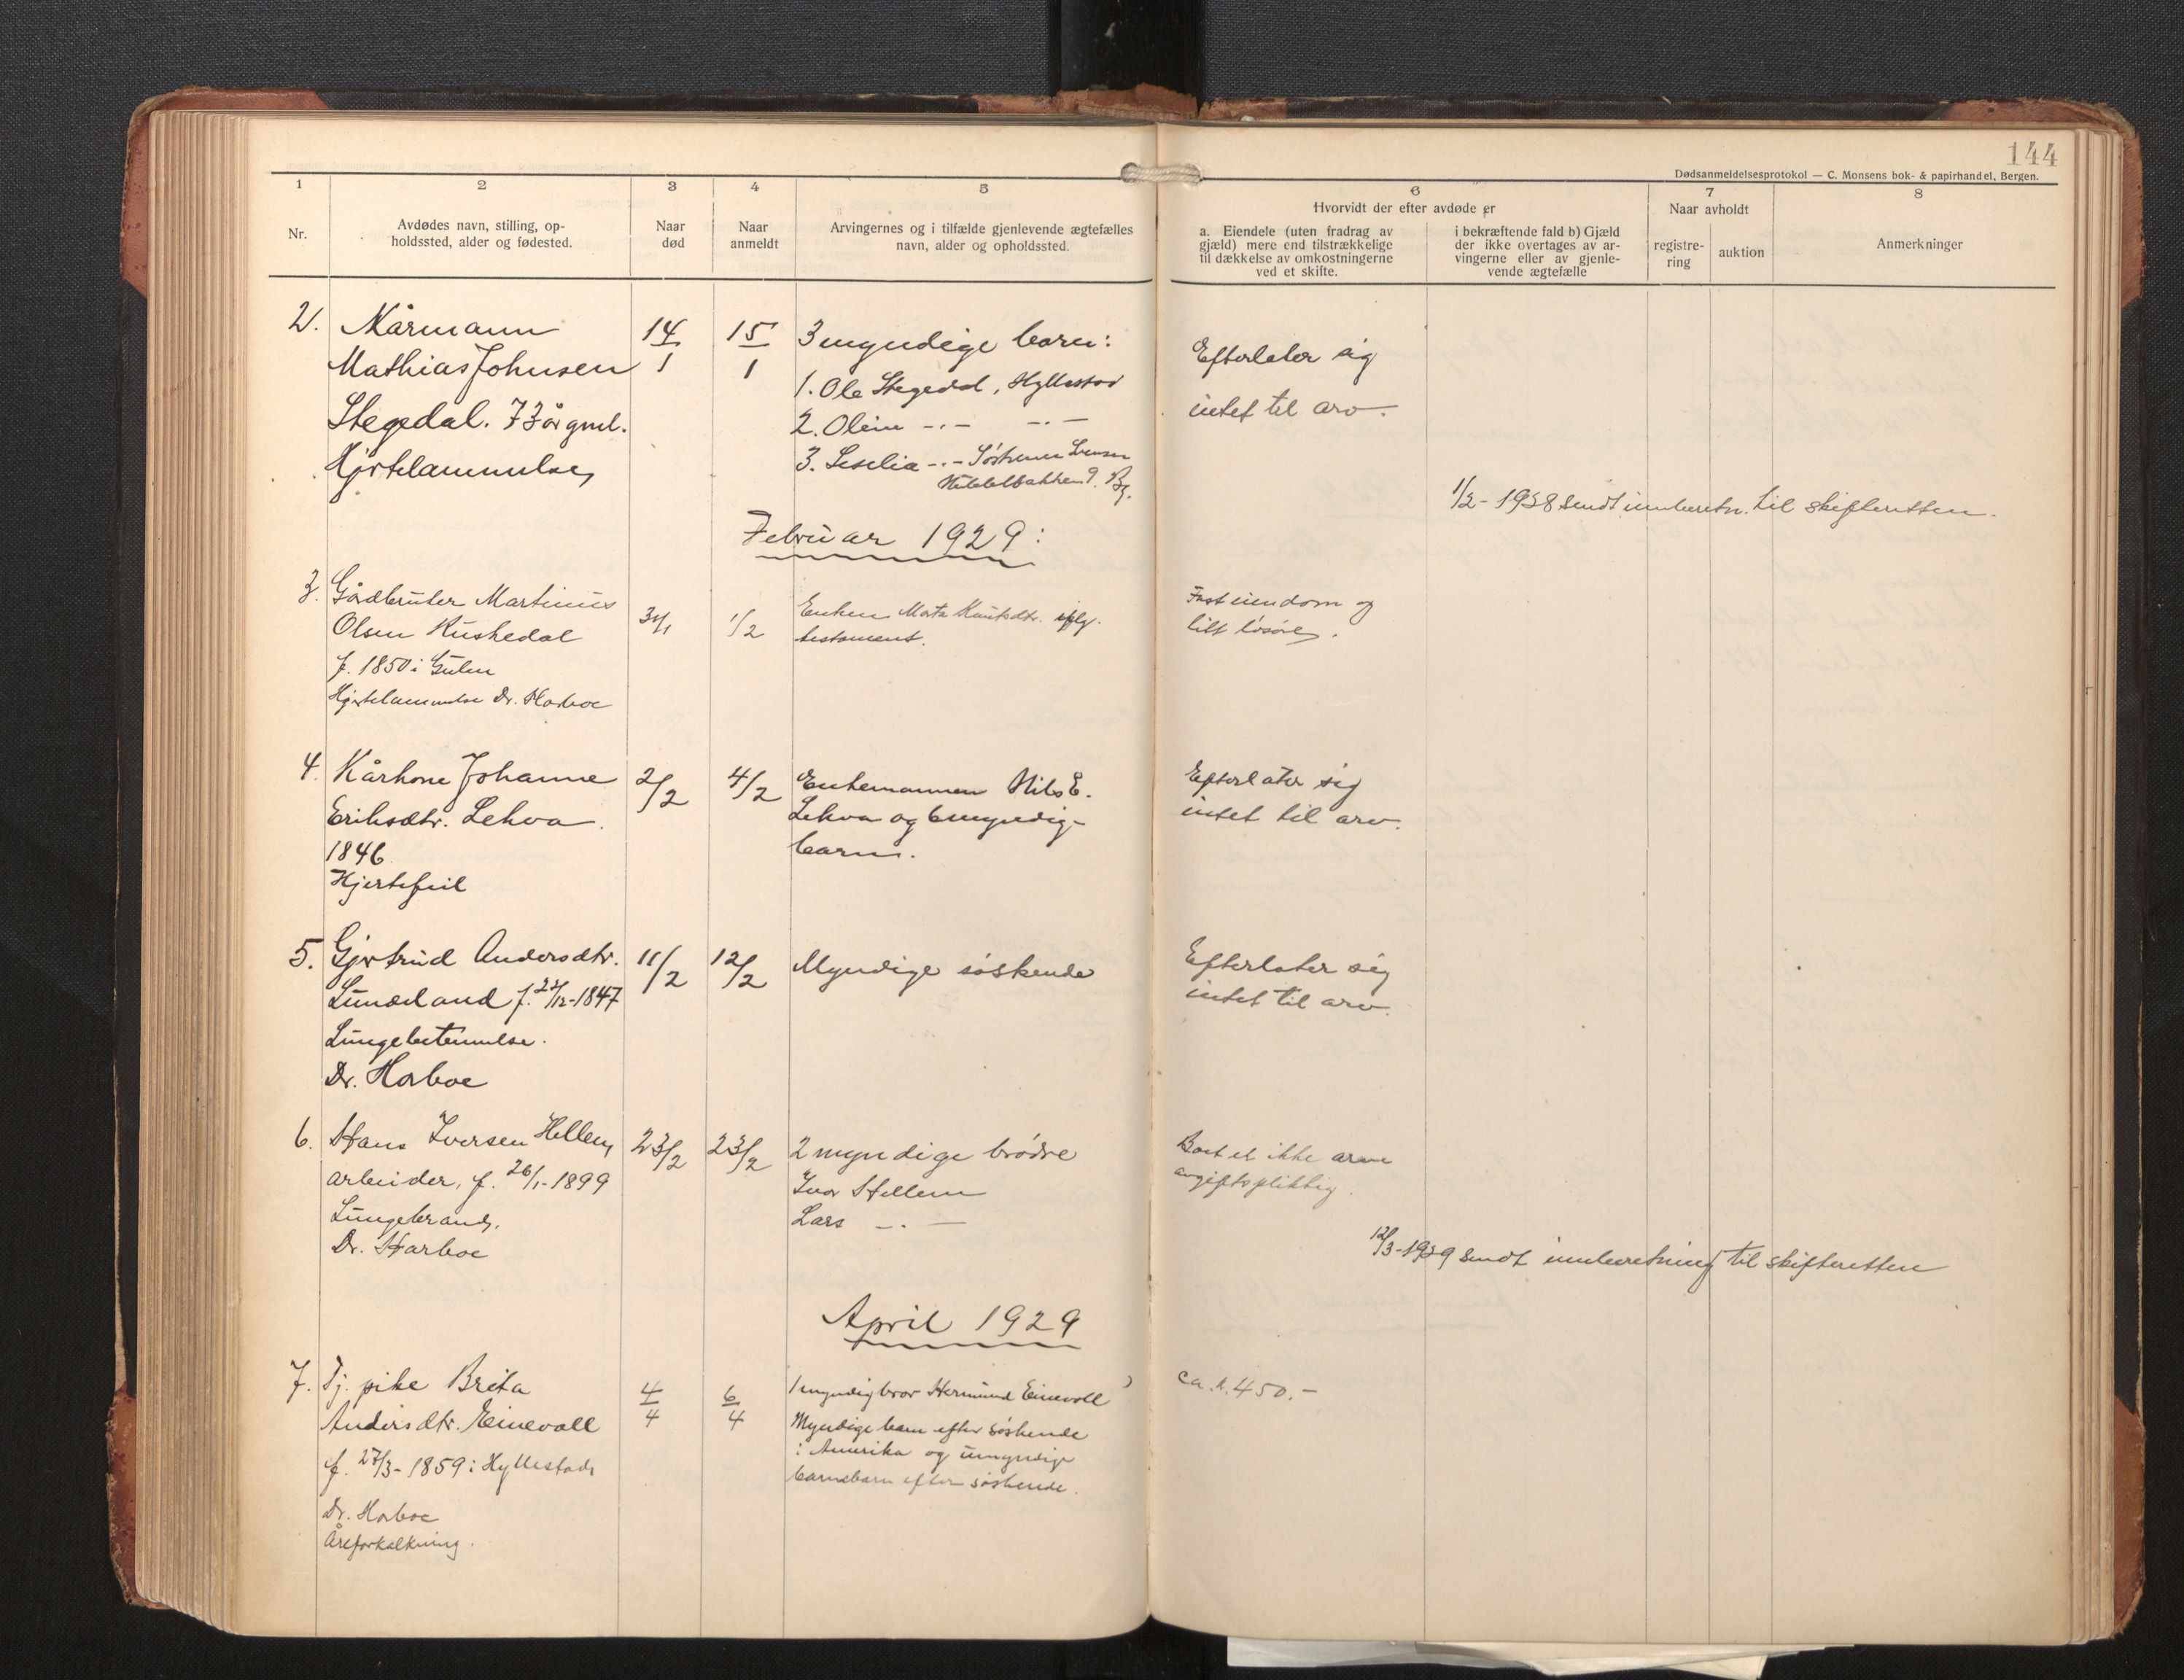 144
Dødsanmeldelsesprotokol — C. Monsens bok- & papirhandel, Bergen.
1
2
3
4
5
6
7
8
Nr.
Avdødes navn, stilling, op-
holdssted, alder og fødested.
Naar
død
Naar
anmeldt
Arvingernes og i tilfælde gjenlevende ægtefælles
navn, alder og opholdssted.
Hvorvidt der efter avdøde er
a. Eiendele (uten fradrag av
gjæld) mere end tilstrækkelige
til dækkelse av omkostningerne
ved et skifte.
i bekræftende fald b) Gjæld
der ikke overtages av ar-
vingerne eller av gjenle-
vende ægtefælle
Naar avholdt
registre-
ring
auktion
Anmerkninger
2. Kårmann
Mathias Johnsen
Stegedal. 73 år gml.
Hjertelammelse
14/1
15/1
3 myndige barn:
1. Ole Stegedal, Hyllestad
2. Oline -.- -.-
3. Seselia -.-
9. Bg.
Efterlater sig
intet til arv.
sendt innberetn. til skifteretten.
Februar 1929:
3. Gårdbruker Martinus
Olsen Kuskedal
f. 1850 i Gulen
Hjertelammelse Dr. Harboe
31/1
1/2
Enken Marta Knutsdtr. iflg.
testament.
Fast eiendom og
litt løsøre.
4. Kårkone Johanne
Eriksdtr. Lekva.
1846
Hjertefeil
2/2
4/2
Enkemannen Nils E.
Lekva og 6 myndig-
barn.
Efterlater sig
intet til arv.
5. Gjertrud Andersdtr.
Lunderland f. 22/12-1847
Lungebetennelse.
Dr. Harboe
11/2
12/2
Myndige søskende
Efterlater sig
intet til arv.
6. Hans Iversen Hellem
arbeider, f. 26/1-1899
Lungebrand,
Dr. Harboe
23/2
23/2
2 myndige brødre
Ivar Hellem
Lars -.-
Boet er ikke arve
avgiftspliktig.
12/3-1929 sendt innberetning til skifteretten
April 1929
7. Tj. pike Brita
Andersdtr. Einevoll
f. 27/3-1859 i Hyllestad
Dr. Harboe
Åreforkalkning.
4/4
6/4
1 myndig bror Hermund Einevoll
Myndige barn efter søskende
i Amerika og umyndige
barnebarn efter søskende.
ca. k. 450.-